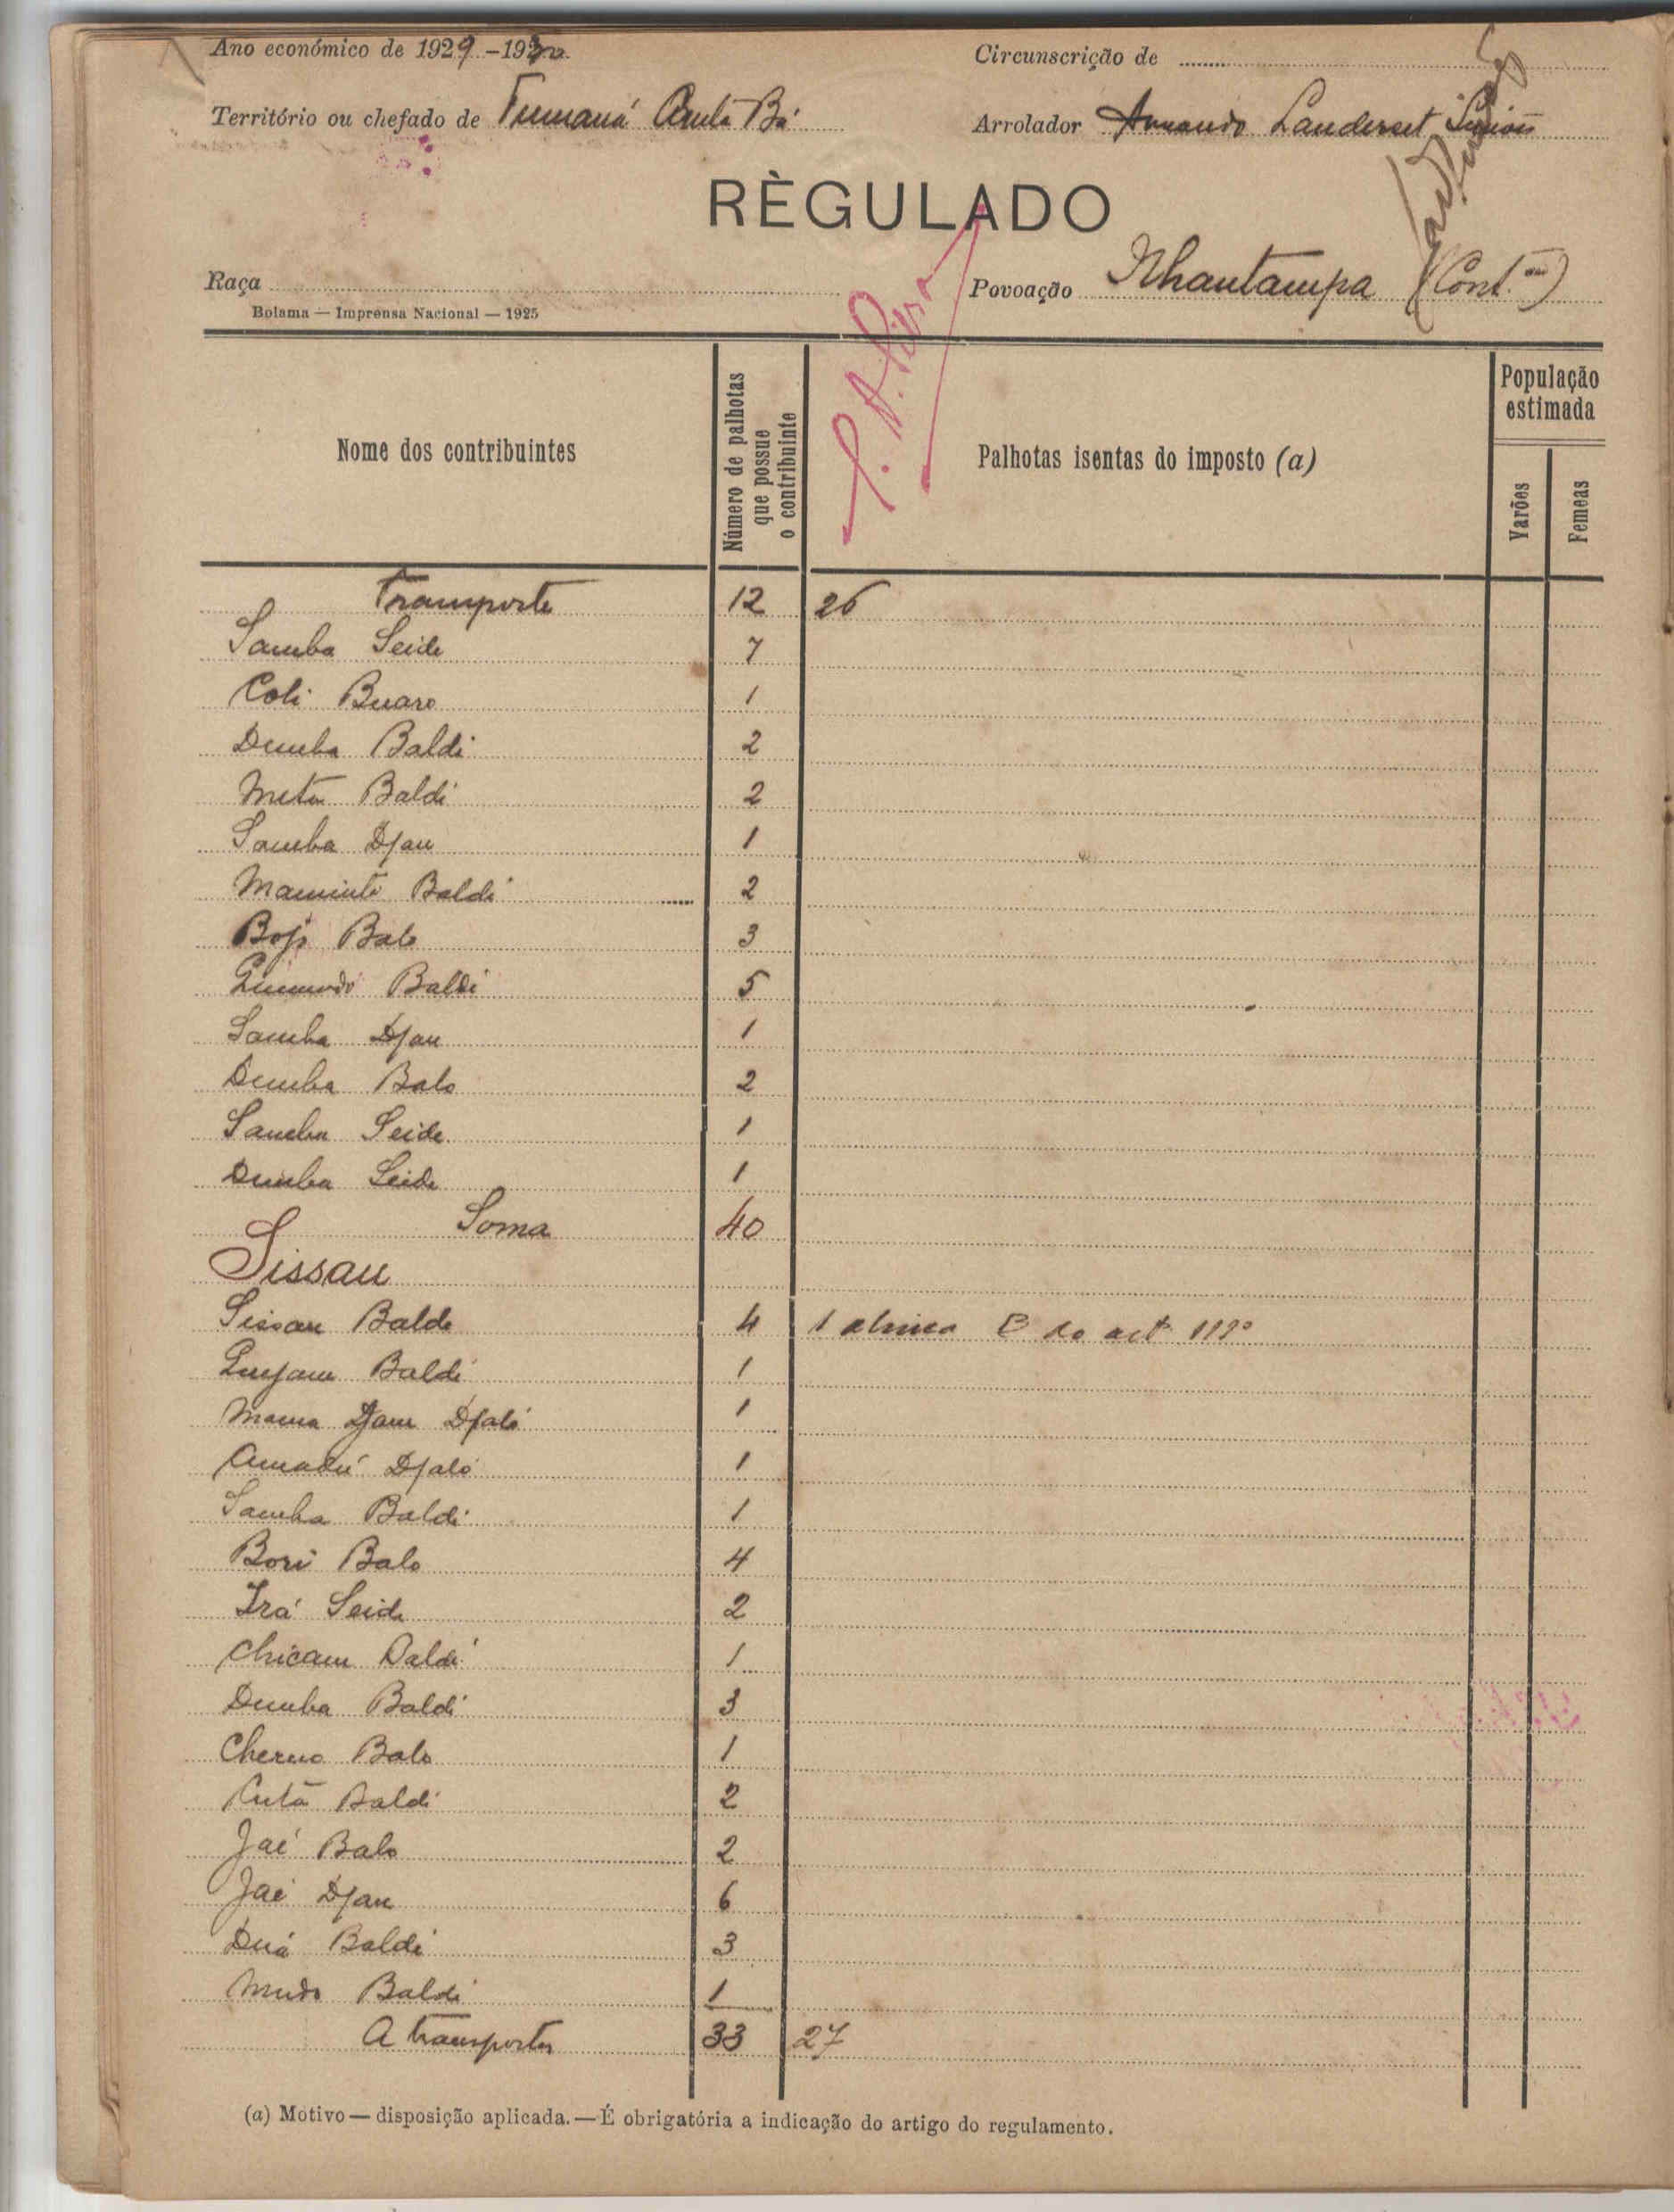 Ano económico de 1929-1930
Circunscrição de
Território ou chefado de Tumaná
Arrolador Armando Landerset Simões
RÈGULADO
Raça
Povoação Nhantampa (Cont.)
Bolama — Imprensa Nacional — 1925
Nome dos contribuintes
Número de palhotas que possue o contribuinte
Palhotas isentas do imposto (a)
População estimada
Varões
Femeas
Transporte 12 26
Samba Seide 7
Coli Buaro 1
Demba Baldé 2
Meta Baldé 2
Samba Djau 1
Maminte Baldé 2
Boji Balo 3
Baldé 5
Samba Djau 1
Demba Balo 2
Samba Seide 1
Demba Seide 1
Soma 40
Sissau
Sissau Balde 4 1 alinea B do art 112º
Baldé 1
Mama Djaló 1
Amadú Djaló 1
Samba Baldé 1
Bori Balo 4
Irá Seide 2
Chicam Baldé 1
Demba Baldé 3
Cherno Balo 1
Cutá Baldé 2
Jaé Balo 2
Jaé Djau 6
Duá Baldé 3
Mudo Baldé 1
A transportar 33 27
(a) Motivo — disposição aplicada. — É obrigatória a indicação do artigo do regulamento.